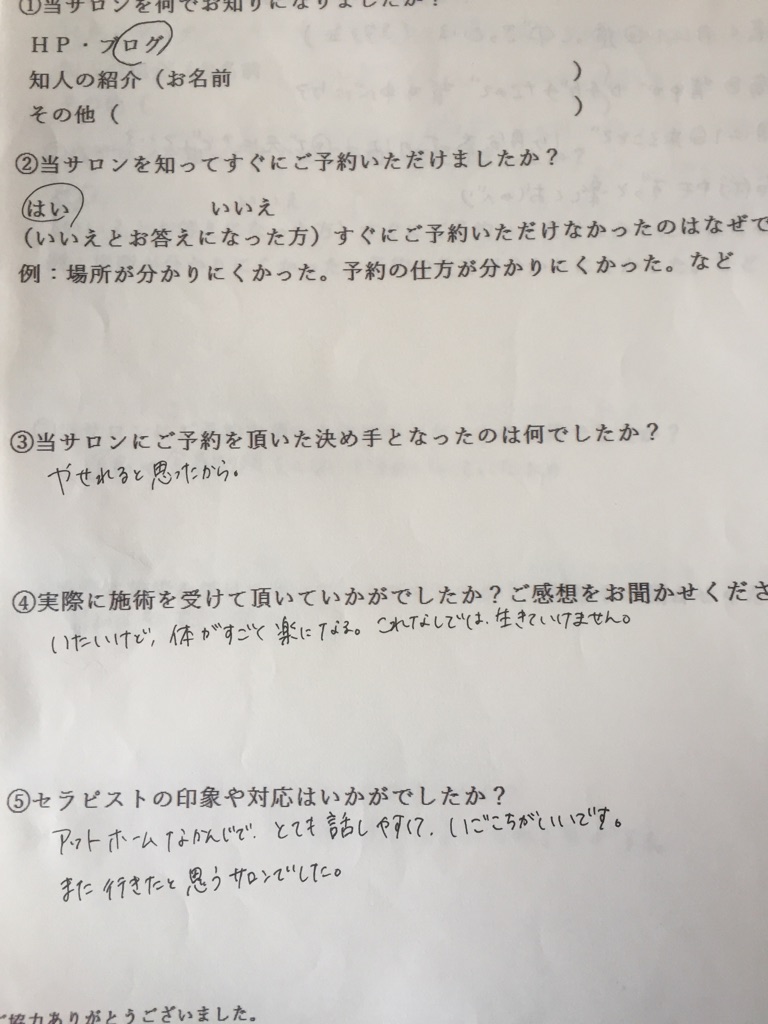 ①当サロンを何でお知りになりましたか？
HP・ブログ
知人の紹介（お名前　　　　　　　　　）
その他（　　　　　　　　　　　　　　）
②当サロンを知ってすぐにご予約いただけましたか？
はい　　　いいえ
（いいえとお答えになった方）すぐにご予約いただけなかったのはなぜで
例：場所が分かりにくかった。予約の仕方が分かりにくかった。など
③当サロンにご予約を頂いた決め手となったのは何でしたか？
やせれると思ったから。
④実際に施術を受けて頂いていかがでしたか？ご感想をお聞かせくださ
いたいけど、体がすごく楽になる。これなしでは、生きていけません。
⑤セラピストの印象や対応はいかがでしたか？
アットホームなかんじで、とても話しやすくて、いごこちがいいです。
また行きたいと思うサロンでした。
ご協力ありがとうございました。